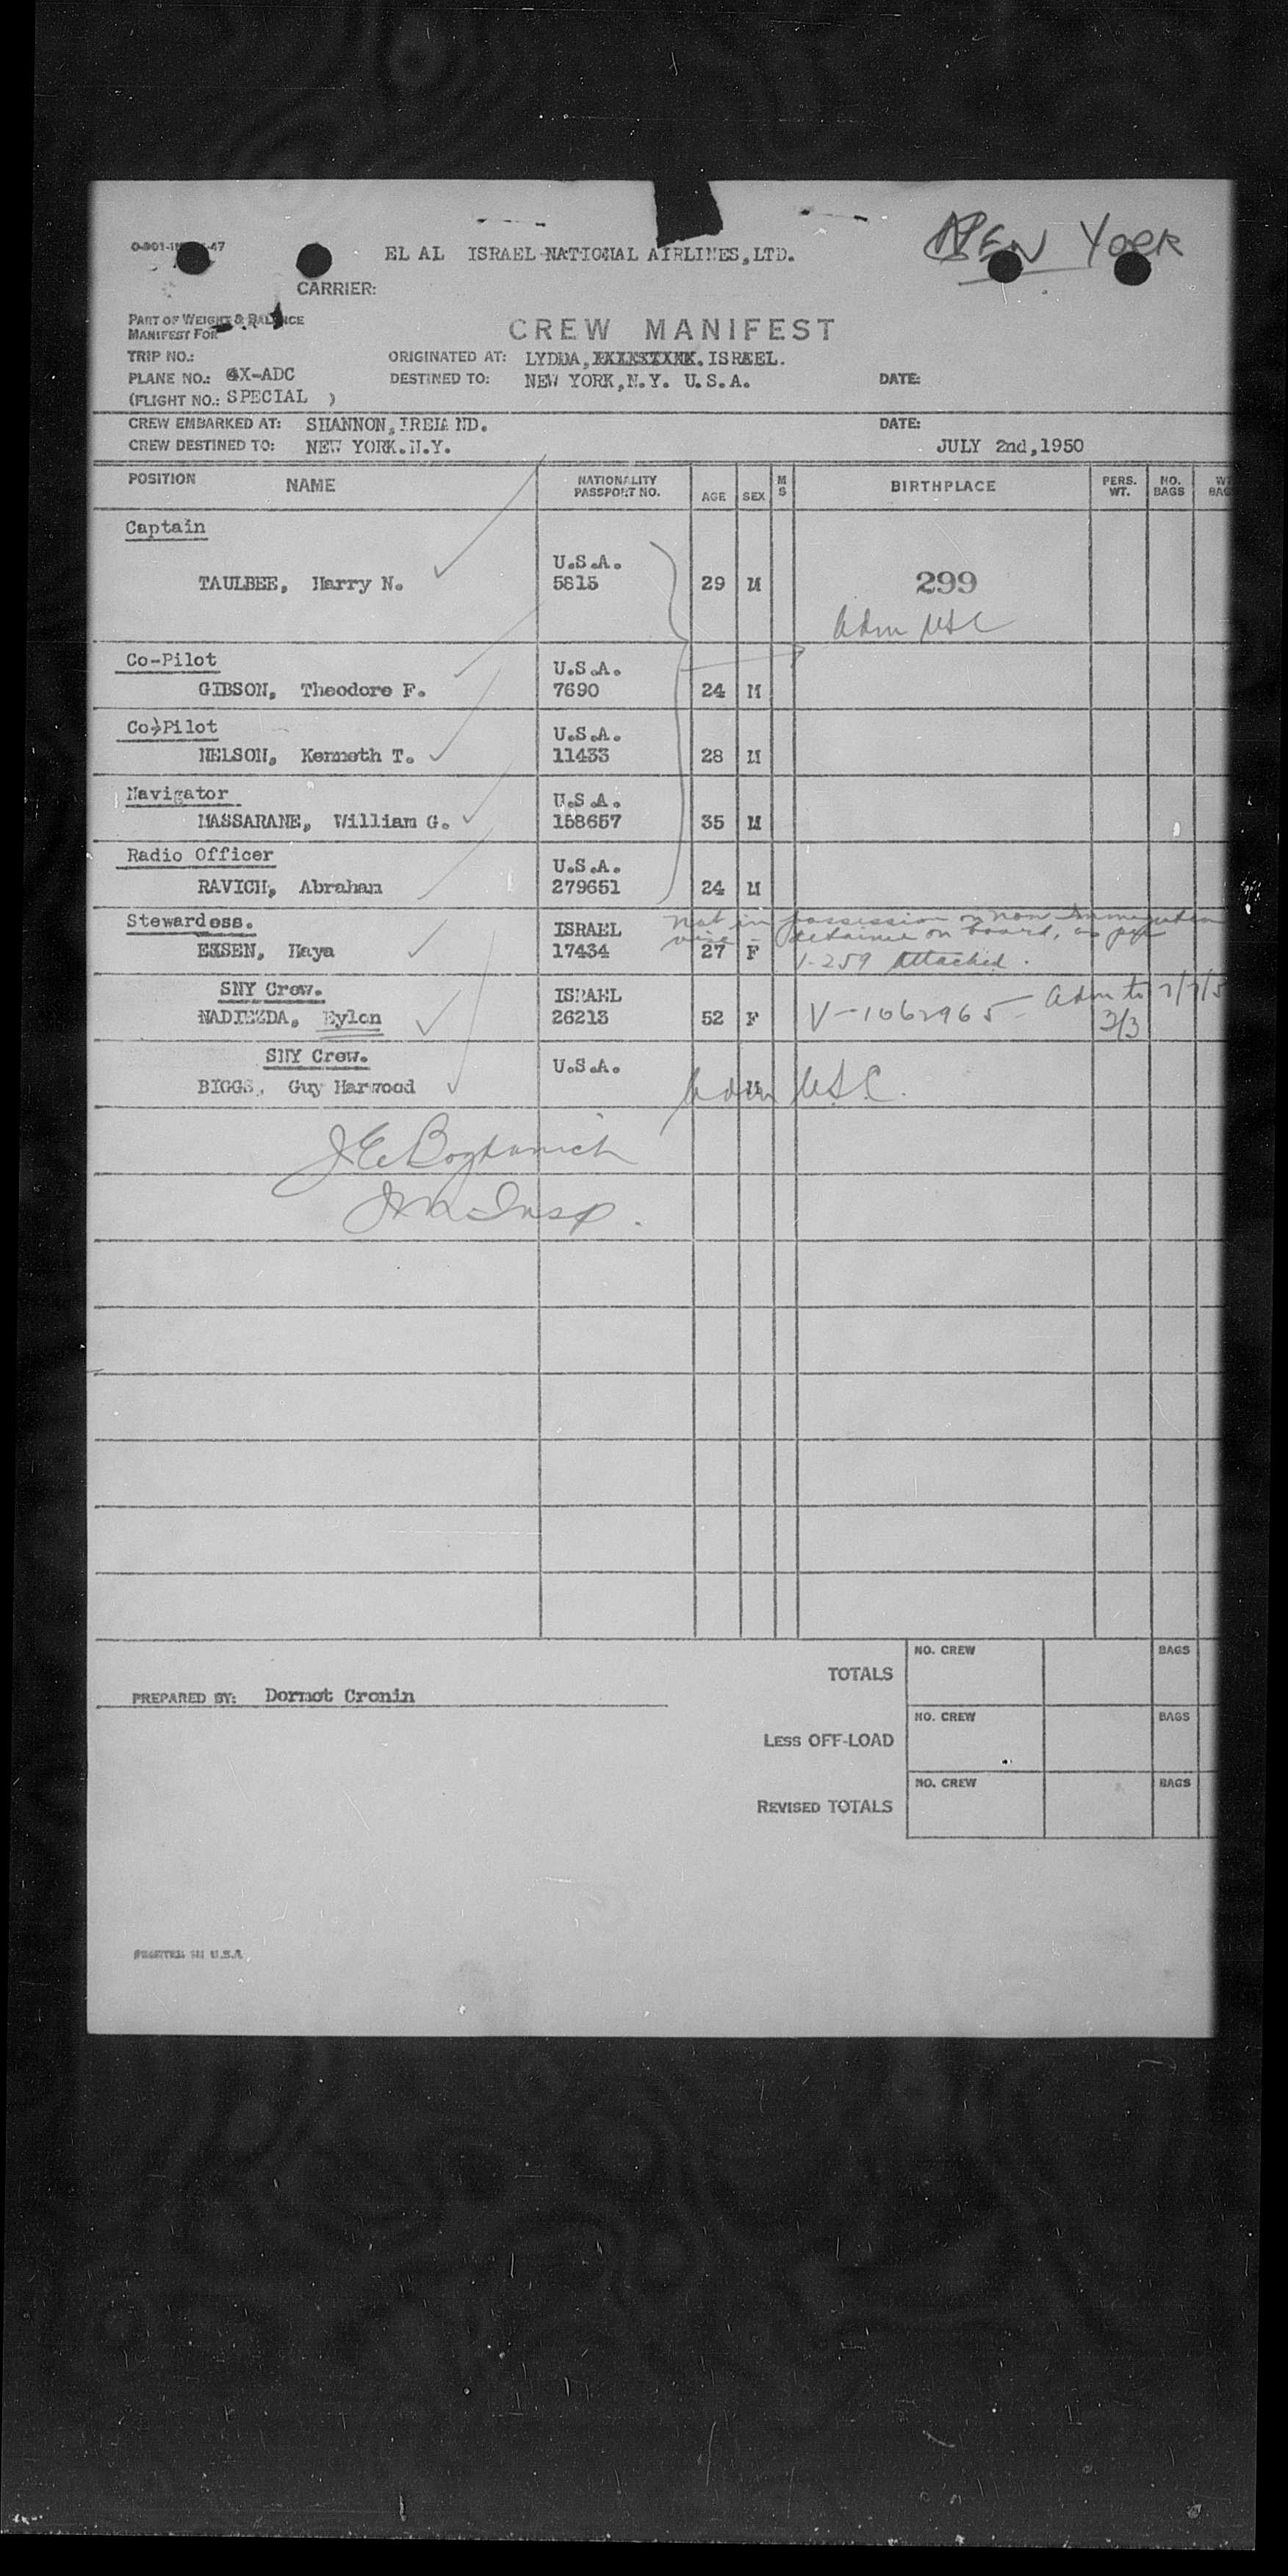 EL AL ISRAEL NATIONAL AIRLINES,LTD.
YORK
CARRIER:
PART OF WEIGHT & BALANCE
MANIFEST FOR
CREW MANIFEST
TRIP NO.:
ORIGINATED AT: LYDDA, ISRAEL.
PLANE NO.: 4X-ADC
DESTINED TO: NEW YORK,N.Y. U.S.A.
DATE:
(FLIGHT NO.: SPECIAL )
CREW EMBARKED AT: SHANNON, IRELAND.
DATE:
CREW DESTINED TO: NEW YORK.N.Y.
JULY 2nd,1950
POSITION NAME NATIONALITY PASSPORT NO. AGE SEX M S BIRTHPLACE PERS. WT. NO. BAGS
Captain
U.S.A.
TAULBEE, Harry N. 5815 29 M 299
Adm USC
Co-Pilot
U.S.A.
GIBSON, Theodore F. 7690 24 M
Co-Pilot
U.S.A.
NELSON, Kenneth T. 11433 28 M
Navigator
U.S.A.
MASSARANE, William G. 158657 35 M
Radio Officer
U.S.A.
RAVICH, Abraham 279651 24 M
Stewardess.
ISRAEL
Not in possession non Immigration
visa - detained on board, as per
Haya 17434 27 F
I-259 attached.
SNY Crew.
ISRAEL
NADIEZDA, Eylon 26213 52 F V-1062965 - Adm to
3/3
SNY Crew.
U.S.A.
BIGGS, Guy Harwood M Adm USC.
J E Bogdanich
Imm Insp.
TOTALS NO. CREW BAGS
PREPARED BY: Dermot Cronin
LESS OFF-LOAD NO. CREW BAGS
REVISED TOTALS NO. CREW BAGS
PRINTED IN U.S.A.